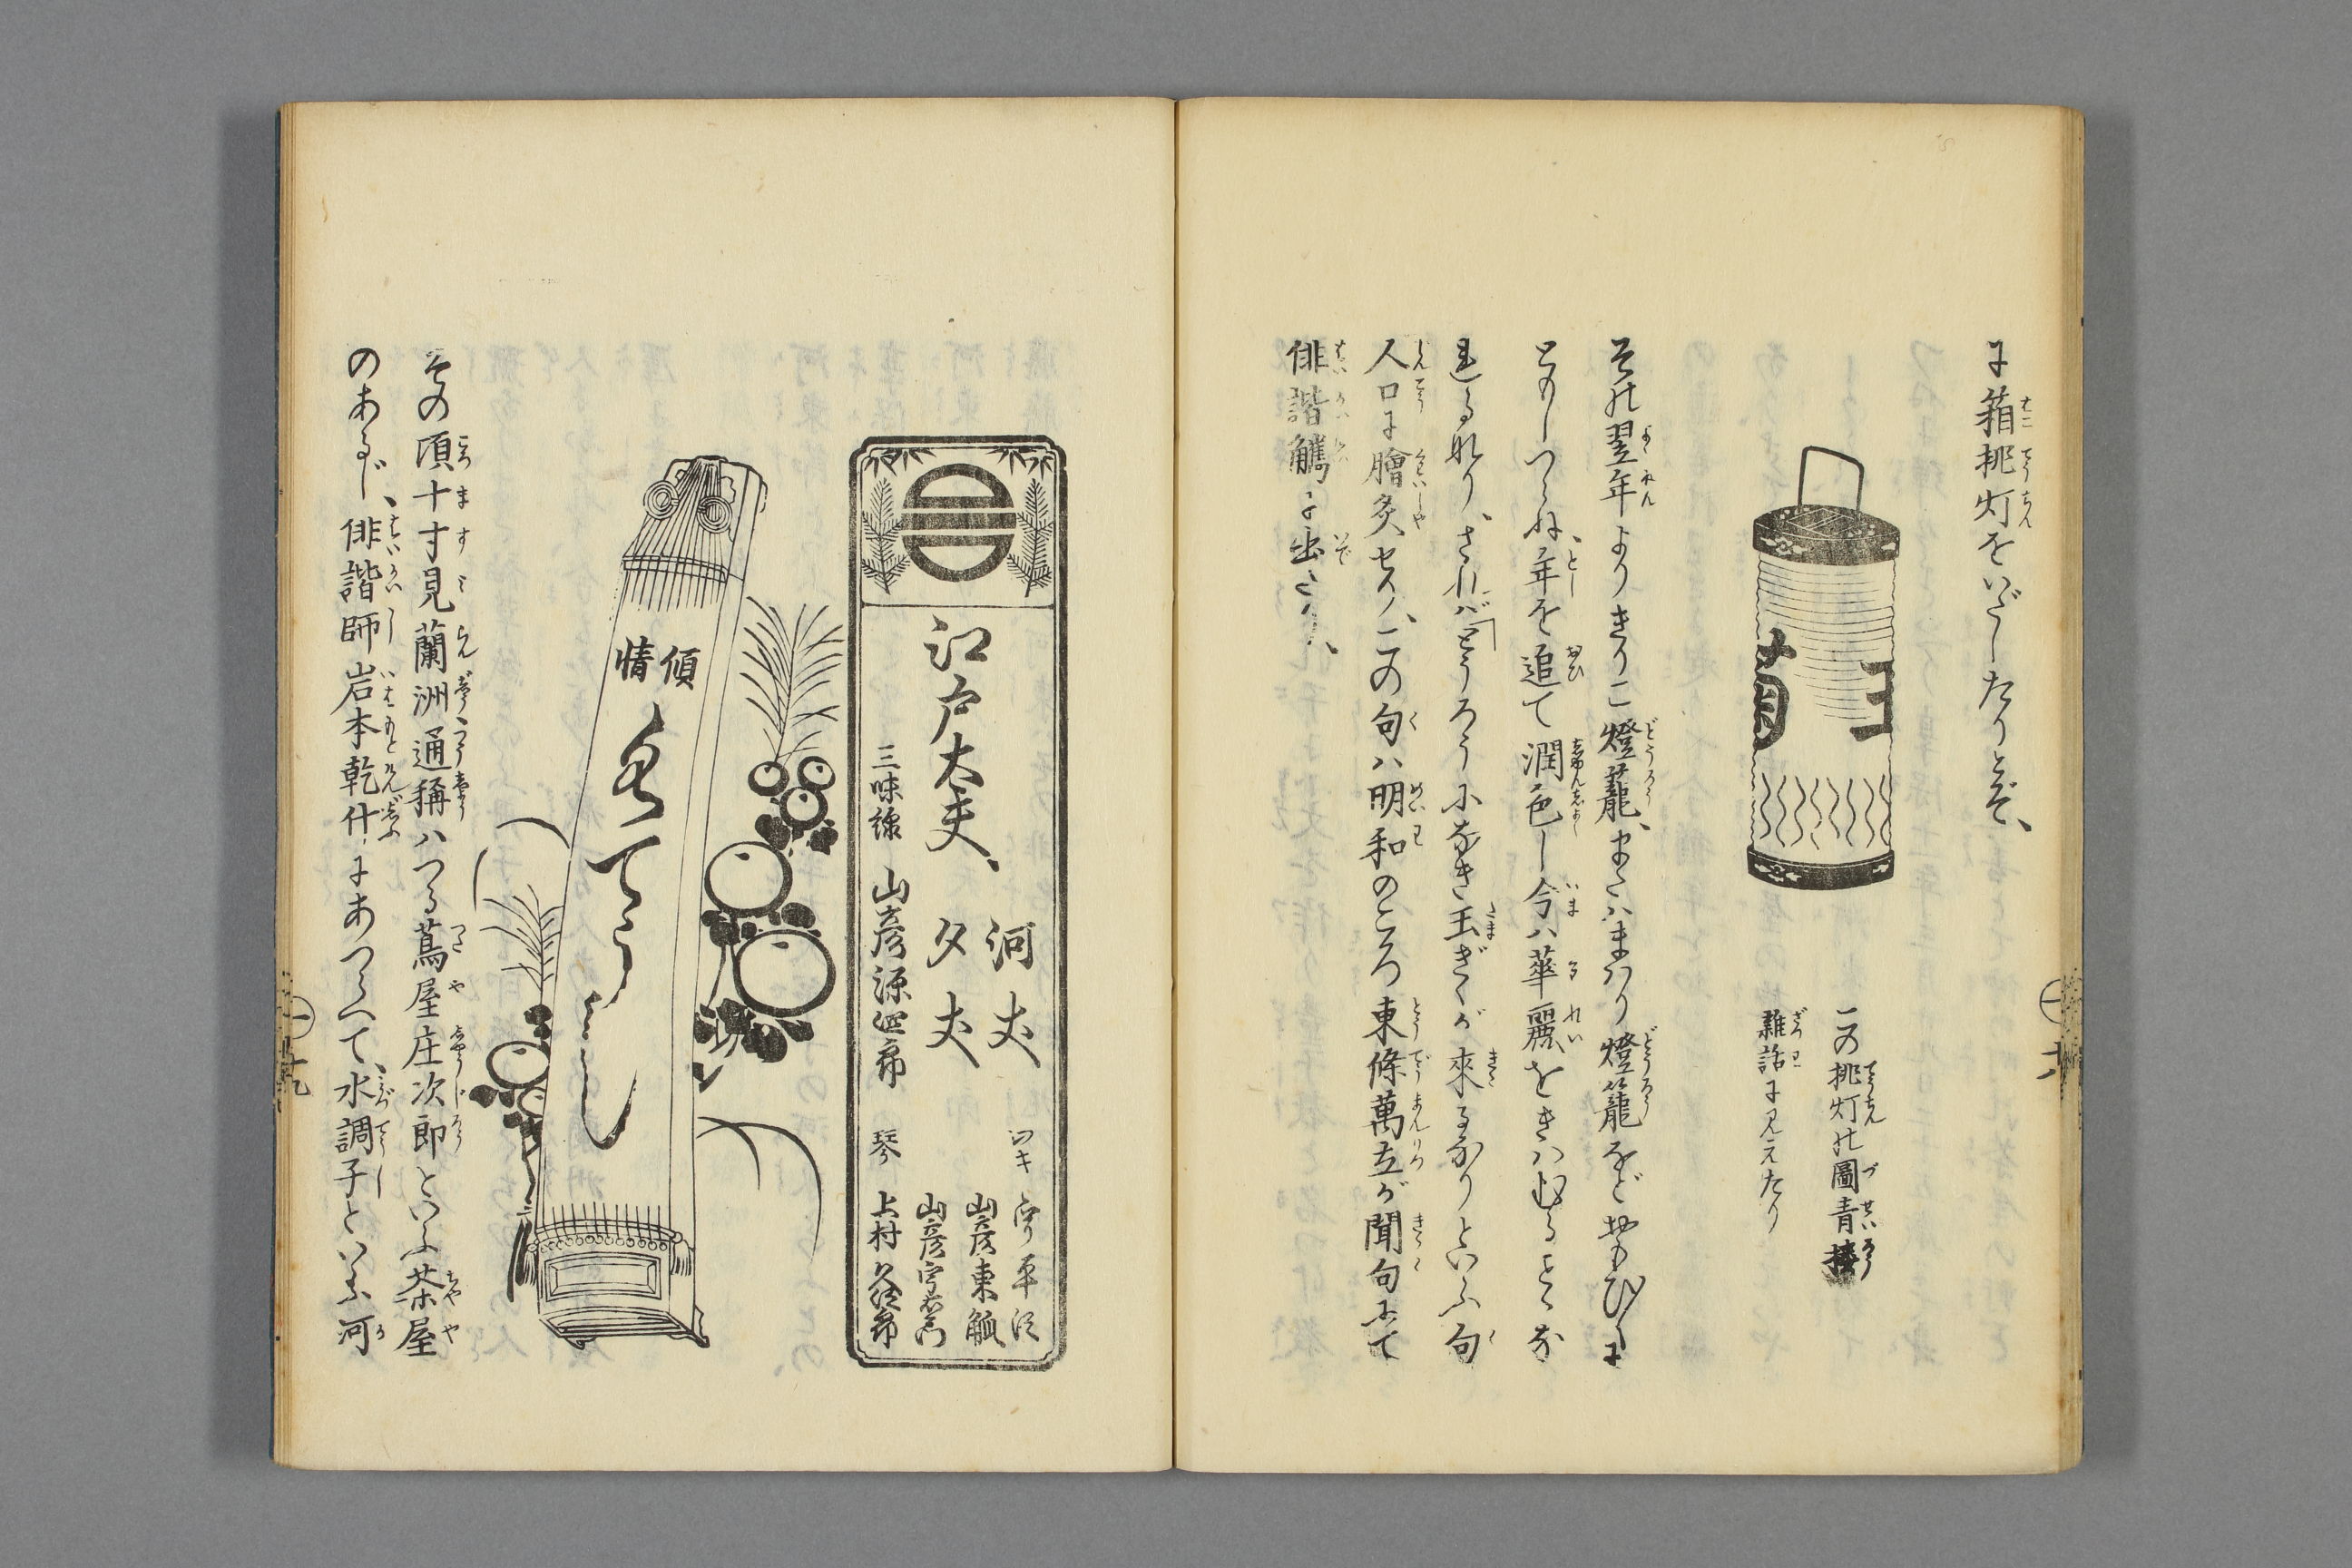 に箱挑灯をいだしたりとぞ、
玉
菊
この挑灯の圖青楼
雜話に見えたり
その翌年よりきりこ燈籠、またはまはり燈籠などおもひ〳〵に
ともしつらね、年を追て潤色し今は華麗をきはむることな
れるなり、されば「とうろうになき玉ぎくが來るなりといふ句
人口に膾炙せり、この句は明和のころ東條萬立が聞句にて
俳諧觿に出たり、
江戸太夫、
河丈
夕丈
ワキ
平河
山彦東觚
山彦宇右衛門
三味線
山彦源四郎
琴
上村久次郎
傾情
水てうし
その頃十寸見蘭洲通稱はつる蔦屋庄次郎といふ茶屋
のあるじ、俳諧師岩本乾什にあつらへて、水調子といふ河
十九